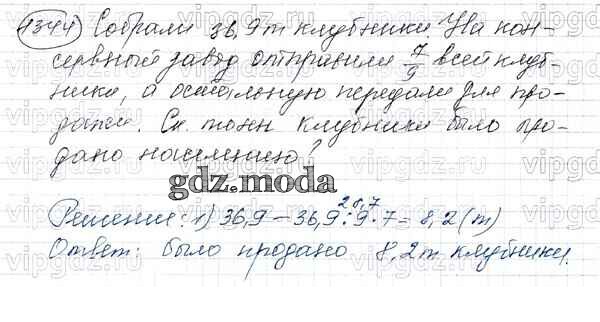 1344 Собрали 36,9т клубники. На кон-
сервный завод отправили 7/9 всей клуб-
ники, а остальную передали для про-
дажи. Ск. тонн клубники было про-
дано населению?
gdz.moda
Решение: 1) 36,9 - 36,9 : 9 · 7 = 8,2 (т)
28,7
Ответ: было продано 8,2т клубники.
vipgdz.ru